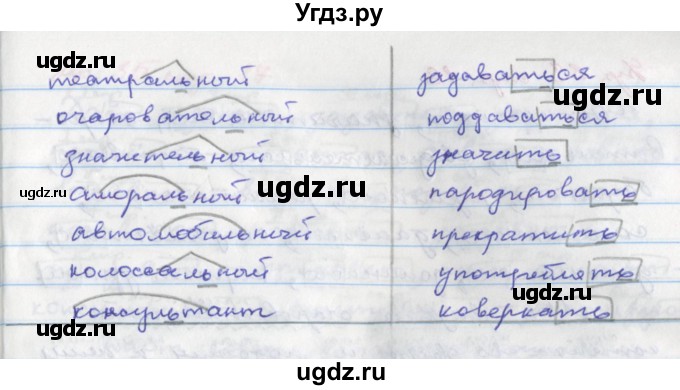 Угдз.ру
театральный
очаровательный
значительный
аморальный
автомобильный
колоссальный
консультант
задаваться
поддаваться
значить
пародировать
прекратить
употреблять
коверкать
ugdz.ru
ugdz.ru
ugdz.ru
ugdz.ru
ugdz.ru
ugdz.ru
ugdz.ru
ugdz.ru
ugdz.ru
ugdz.ru
ugdz.ru